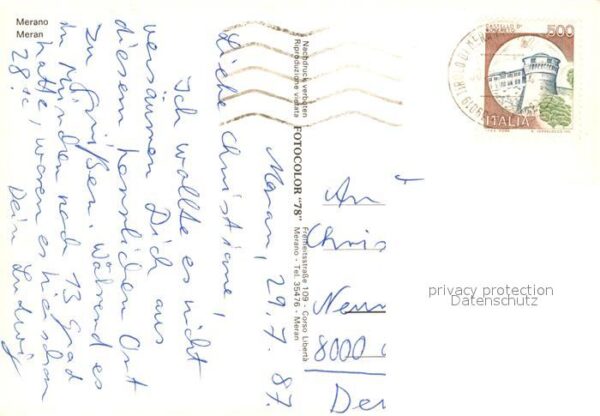 Merano
Meran
Meran, 29.7.87.
Liebe Christiane!
Ich wollte es nicht
versäumen Dich aus
diesem herrlichen Ort
zu grüßen. Während es
in München noch 13 Grad
hatte, waren es hier schon
28 °C Dein Ludwig
Nachdruck verboten
Riproduzione vietata
FOTOCOLOR "78"
Freiheitsstraße 109 - Corso Libertà
Merano - Tel. 35476 - Meran
CASTELLO DI
ROVERETO
500
ITALIA
An
Chris
8000
privacy protection
Datenschutz